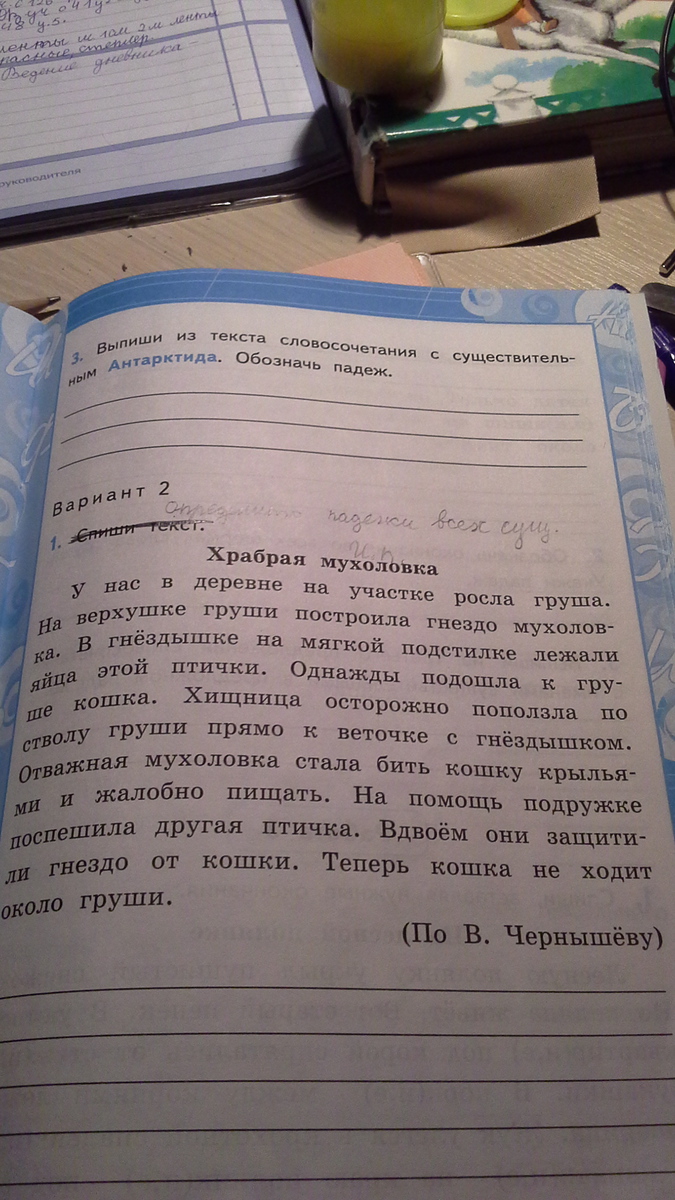 48 у.5.
ленты м 1ом 2м ленты
красные, степлер
Ведение дневника -
руководителя
3. Выпиши из текста словосочетания с существитель-
ным Антарктида. Обозначь падеж.
Вариант 2
Определить падежи всех сущ.
1. Спиши текст.
И.п.
Храбрая мухоловка
У нас в деревне на участке росла груша.
На верхушке груши построила гнездо мухолов-
ка. В гнёздышке на мягкой подстилке лежали
яйца этой птички. Однажды подошла к гру-
ше кошка. Хищница осторожно поползла по
стволу груши прямо к веточке с гнёздышком.
Отважная мухоловка стала бить кошку крылья-
ми и жалобно пищать. На помощь подружке
поспешила другая птичка. Вдвоём они защити-
ли гнездо от кошки. Теперь кошка не ходит
около груши.
(По В. Чернышёву)